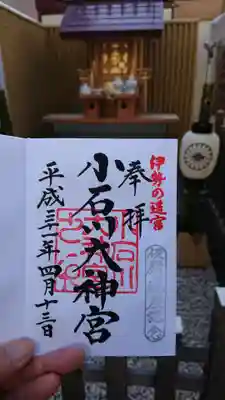 伊勢の遙宮
奉拝
小石川大神宮
平成三十一年四月十三日